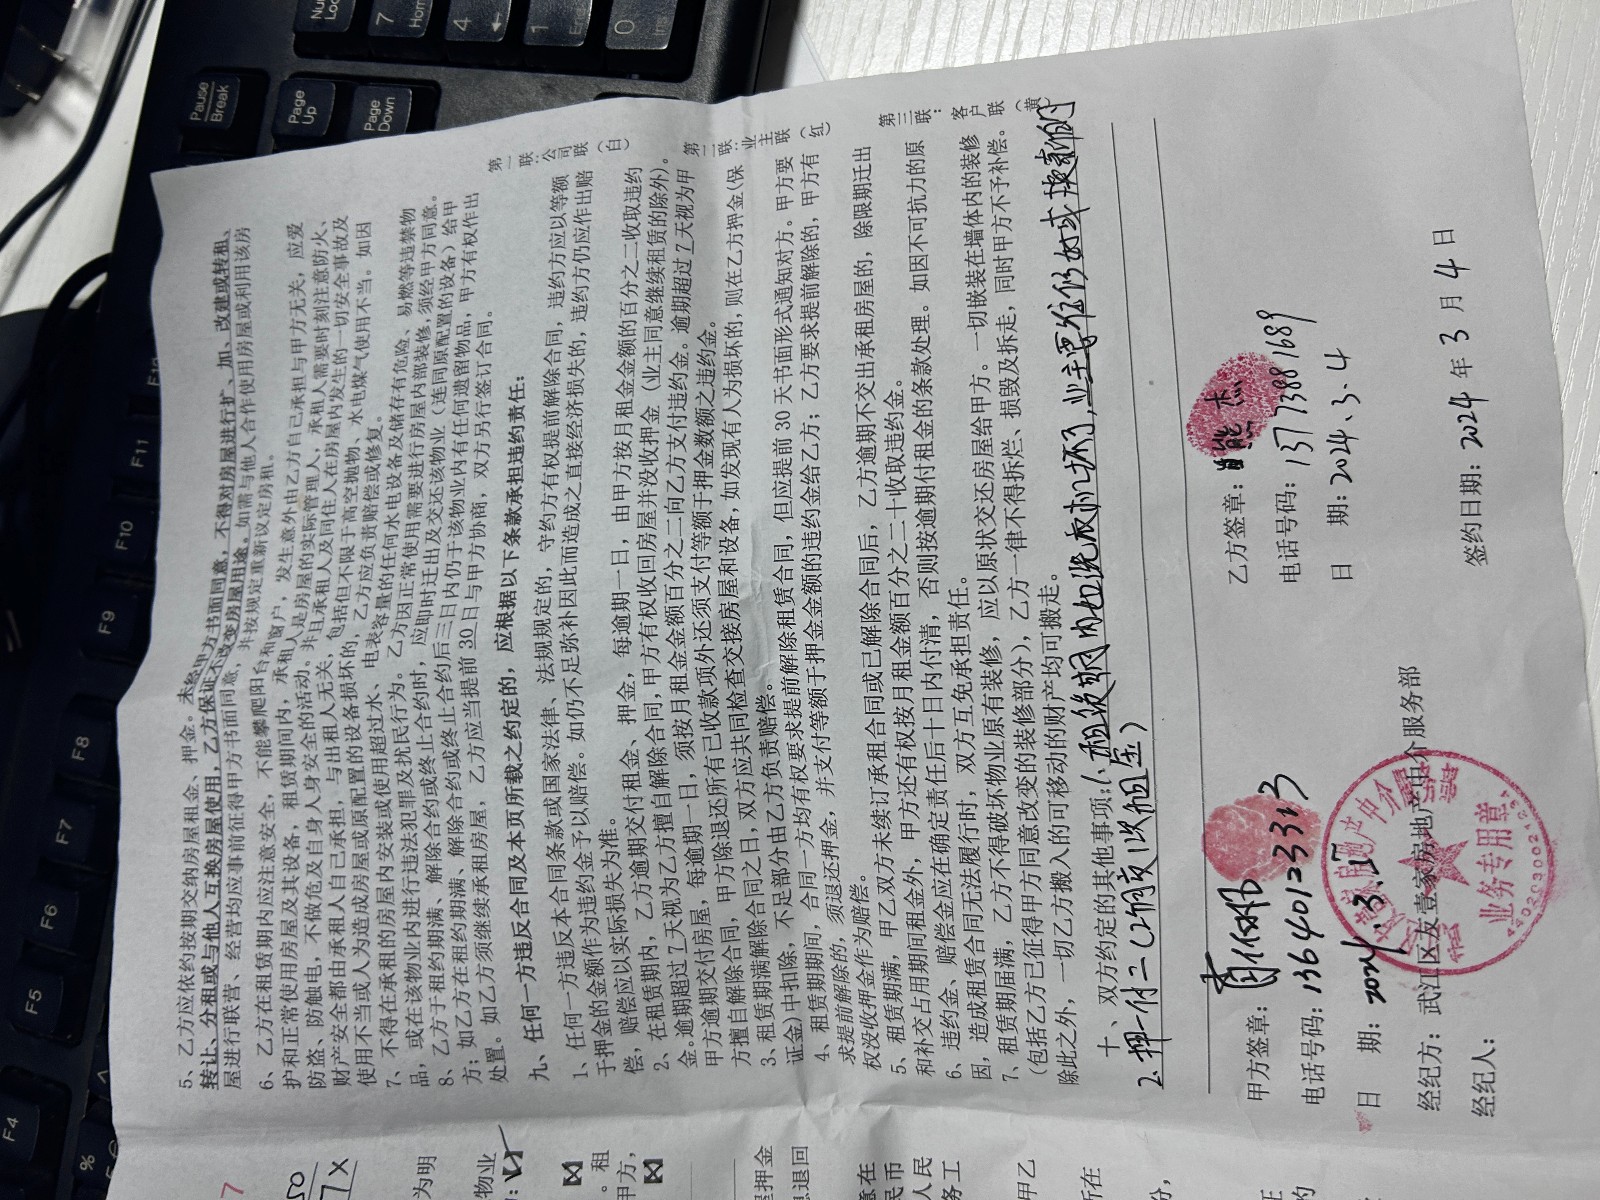 5、乙方应依约按期交纳房屋租金、押金。未经甲方书面同意，不得对房屋进行扩、加、改建或转租、
转让、分租或与他人互换房屋使用，乙方保证不改变房屋用途。如需与他人合作使用房屋或利用该房
屋进行联营、经营均应事前征得甲方书面同意，并按规定重新议定房租。
6、乙方在租赁期内应注意安全，不能攀爬阳台和窗户，发生意外由乙方自己承担与甲方无关，应爱
护和正常使用房屋及其设备，租赁期间内，承租人是房屋的实际管理人、承租人需要时刻注意防火、
防盗、防触电，不做危及自身人身安全的活动，并且承租人及同住人在房屋内发生的一切安全事故及
财产安全都由承租人自己承担，与出租人无关，包括但不限于高空抛物、水电煤气使用不当。如因
使用不当或人为造成房屋或原配置的设备损坏的，乙方应负责赔偿或修复。
7、不得在承租的房屋内安装或使用超过水、电表容量的任何水电设备及储存有危险、易燃等违禁物
品，或在该物业内进行违法犯罪及扰民行为。乙方因正常使用需要进行房屋内部装修，须经甲方同意。
8、乙方于租约期满、解除合约或终止合约时，应即时迁出及交还该物业（连同原配置的设备）给甲
方；如乙方在租约期满、解除合约或终止合约后三日内仍于该物业内有任何遗留物品，甲方有权作出
处置。如乙方须继续承租房屋，乙方应当提前30日与甲方协商，双方另行签订合同。
九、任何一方违反合同及本页所载之约定的，应根据以下条款承担违约责任：
1、任何一方违反本合同条款或国家法律、法规规定的，守约方有权提前解除合同，违约方应以等额
于押金的金额作为违约金予以赔偿。如仍不足弥补因此而造成之直接经济损失的，违约方仍应作出赔
偿，赔偿应以实际损失为准。
2、在租赁期内，乙方逾期交付租金、押金，每逾期一日，由甲方按月租金金额的百分之二收取违约
金。逾期超过7天视为乙方擅自解除合同，甲方有权收回房屋并没收押金（业主同意继续租赁的除外）。
甲方逾期交付房屋，每逾期一日，须按月租金金额百分之二向乙方支付违约金。逾期超过7天视为甲
方擅自解除合同，甲方除退还所有已收款项外还须支付等额于押金数额之违约金。
3、租赁期满解除合同之日，双方应共同检查交接房屋和设备，如发现有人为损坏的，则在乙方押金(保
证金)中扣除，不足部分由乙方负责赔偿。
4、租赁期期间，合同一方均有权要求提前解除租赁合同，但应提前30天书面形式通知对方。甲方要
求提前解除的，须退还押金，并支付等额于押金金额的违约金给乙方；乙方要求提前解除的，甲方有
权没收押金作为赔偿。
5、租赁期满，甲乙双方未续订承租合同或已解除合同后，乙方逾期不交出承租房屋的，除限期迁出
和补交占用期间租金外，甲方还有权按月租金额百分之二十收取违约金。
6、违约金、赔偿金应在确定责任后十日内付清，否则按逾期付租金的条款处理。如因不可抗力的原
因，造成租赁合同无法履行时，双方互免承担责任。
7、租赁期届满，乙方不得破坏物业原有装修，应以原状交还房屋给甲方。一切嵌装在墙体内的装修
(包括乙方已征得甲方同意改变的装修部分)，乙方一律不得拆烂、损毁及拆走，同时甲方不予补偿。
除此之外，一切乙方搬入的可移动的财产均可搬走。
十、双方约定的其他事项：(1、租赁期内电洗衣机坏了，业主要维修好或换新的
2、押一付二（2个月交1次租金）
第一联：公司联（白）
第二联：业主联（红）
第三联：客户联（黄）
甲方签章：
电话号码：13640123313
日 期：2024.3.4
经纪方：武江区友壹家房地产中介服务部
经纪人：
业务专用章
乙方签章：熊杰
电话号码：137173881689
日 期：2024、3、4
签约日期：2024年3月4日
Pause
Break
Page
Up
Page
Down
Home
7
4
1
0
Ins
F4
F5
F6
F7
F8
F9
F10
F11